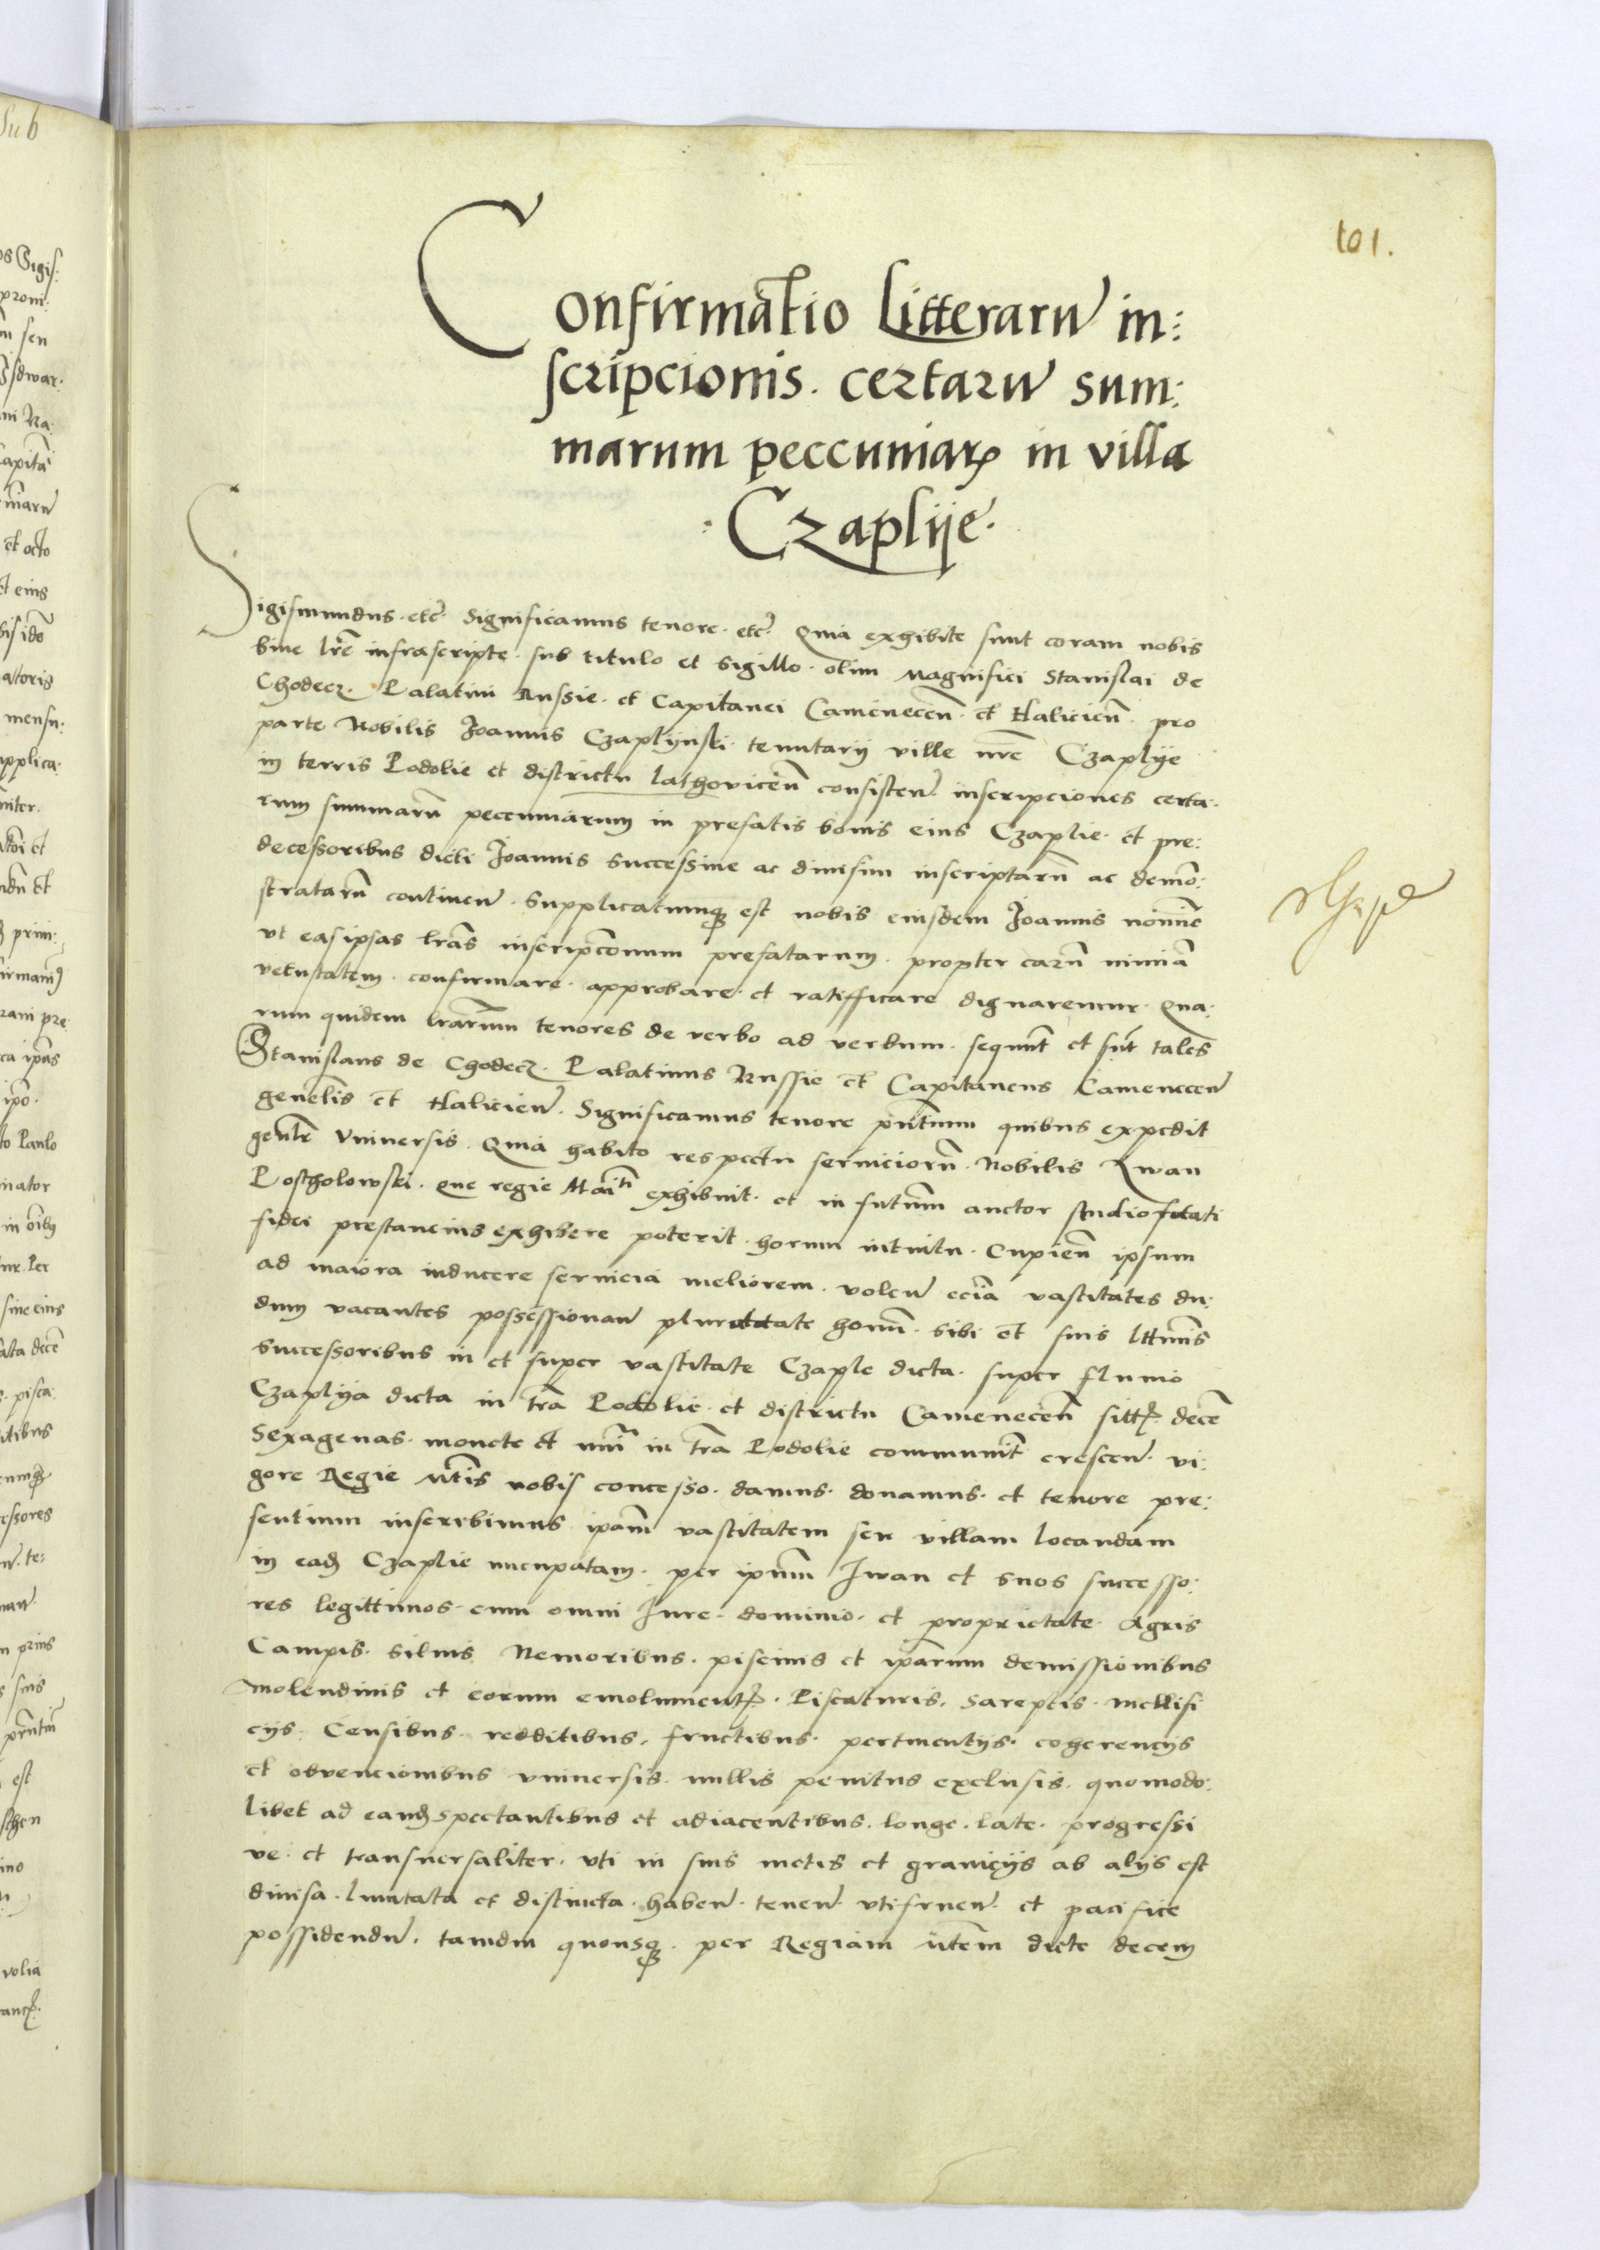 101.
Confirmatio Litterarum in:
scripcionis. certarum sum:
marum peccuniarum in villa
. Czaplije .
Sigismundus. etc. Significamus tenore. etc. Quia exhibite sunt coram nobis
bine lre infrascripte. sub titulo et sigillo. olim Magnifici Stanislai de
Chodecz. Palatini Russie. et Capitanei Camenecen. et Halicien. pro
parte Nobilis Joannis Czaplijnski. tenutarij ville nre Czaplije
in terris Podolie et districtu lathovicien consisten. inscripciones certa.
rum summaru peccuniarum in prefatis bonis eius Czaplie. et pre:
decessoribus dicti Joannis successiue ac diuisim inscriptaru ac demo:
strataru continen. Supplicatumq est nobis eiusdem Joannis nomine
vt eas ipsas lras inscripconum prefatarum. propter earu nimia
vetustatem. confirmare. approbare. et ratifficare dignaremur. Qua:
rum quidem lrarum tenores de verbo ad verbum. sequnt et sunt tales
Stanislaus de Chodecz. Palatinus Russie et Capitaneus Camenecen
genelis et Halicien. Significamus tenore pntium quibus expedit
genlr Vniuersis. Quia habito respectu seruicioru. Nobilis Iwan
Poscholowski. que regie Maiti exhibuit. et in futum auctor studio
fidei prestancius exhibere poterit. horum intuitu. Cupien ipsum
ad maiora inducere seruicia meliorem. volen ecia vastitates du:
dum vacantes possessionari pluralitate homi. sibi et suis lttimis
successoribus in et super vastitate Czaple dicta. super fluuio
Czaplya dicta in tra Podolie. et districtu Camenecen sitt. dece
Sexagenas. monete et nui in tra Podolie communit crescen. vi:
gore Regie Mtis nobis concesso. damus. donamus. et tenore pre:
sentium inscribimus ipam vastitatem seu villam locandam
in ead Czaplie nucupatam. per ipum Iwan et suos successo:
res legittimos. cum omni Jure. dominio. et proprietate. Agris
Campis. siluis Nemoribus. piscinis et iparum demissionibus
molendinis et eorum emolument. Piscaturis. Sareptis. mellifi
cijs. Censibus. redditibus. fructibus. pertinentijs. cogerencijs
et obvencionibus vniuersis. nullis penitus exclusis. quomodo:
libet ad eand spectantibus et adiacentibus. longe. late. progressi
ve. et transuersaliter. vti in suis metis et granicijs ab alijs est
diuisa. limitata et distincta. haben. tenen. vtifruen. et pacifice
possidendu. tamdiu quousq. per Regiam Mtem dicte decem